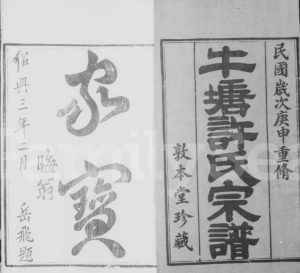 民國歲次庚申重脩
牛塘許氏宗譜
敦本堂珍藏
家寶
紹興三年二月
晦翁
岳飛題